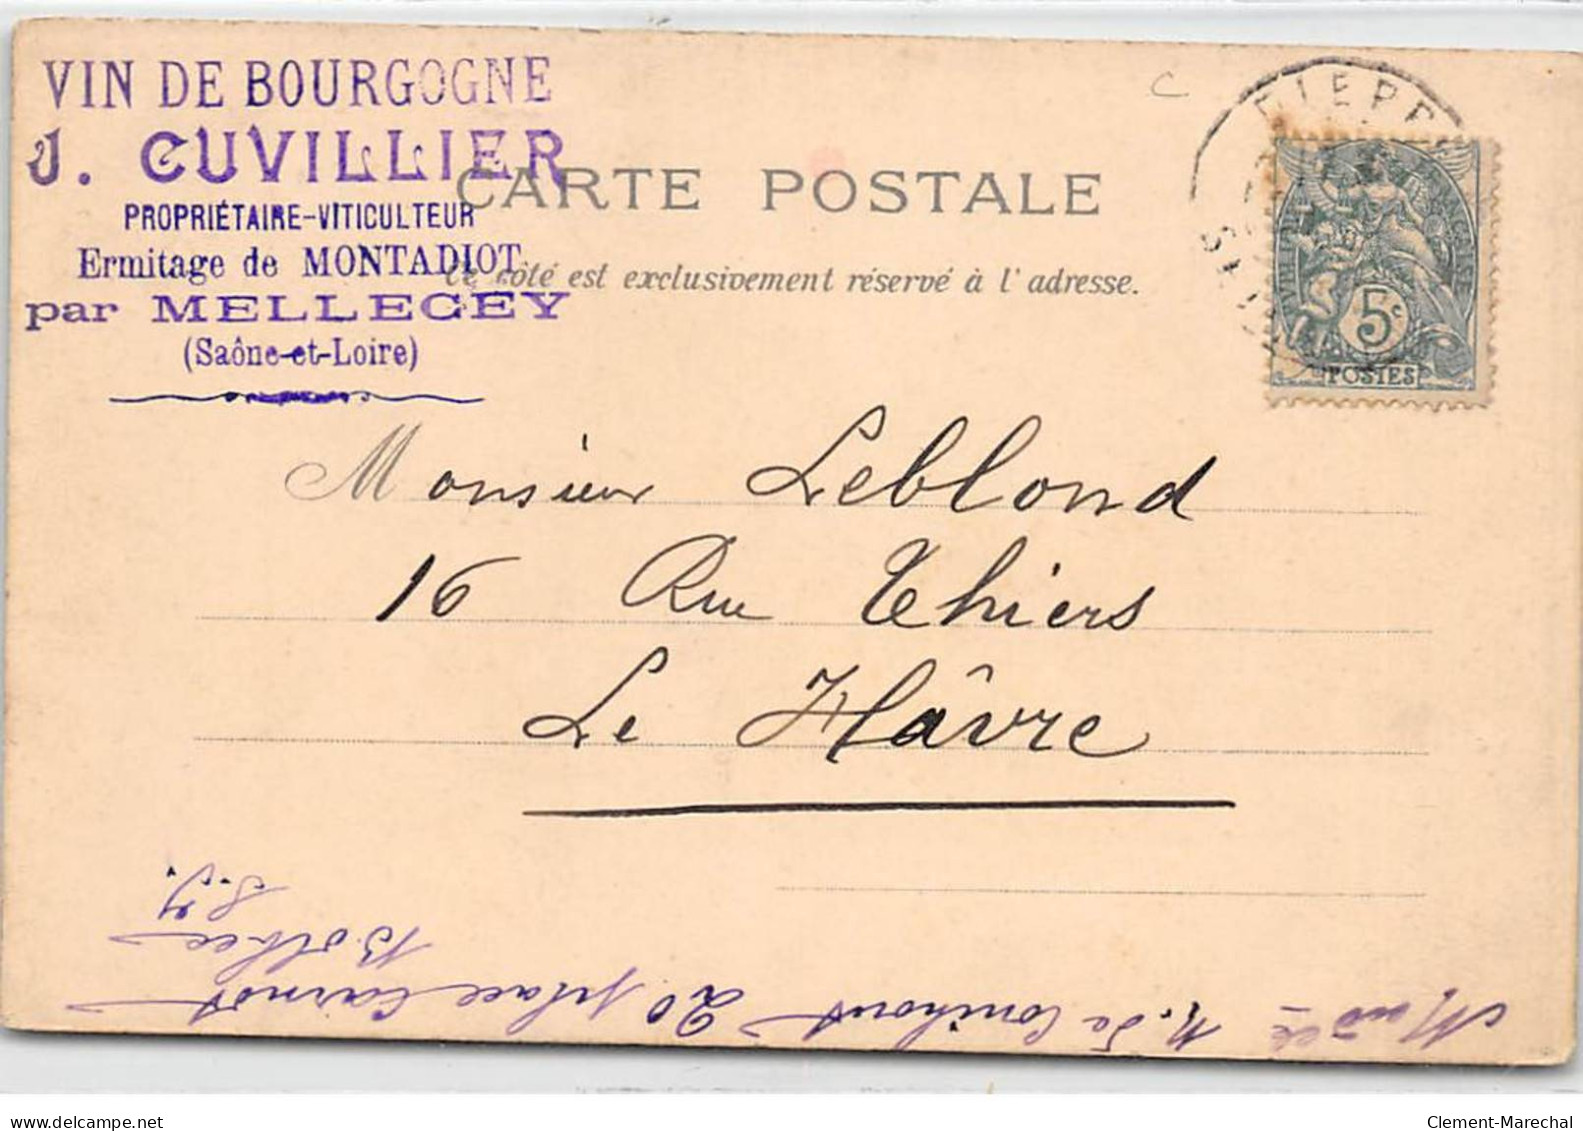 VIN DE BOURGOGNE
J. CUVILLIER
PROPRIÉTAIRE-VITICULTEUR
Ermitage de MONTADIOT
par MELLECEY
(Saône-et-Loire)
CARTE POSTALE
Ce côté est exclusivement réservé à l'adresse.
5c
POSTES
Monsieur Leblond
16 Rue Thiers
Le Hâvre
20 place Carnot
Bolbec
S. I.
delcampe.net
Clement-Marechal